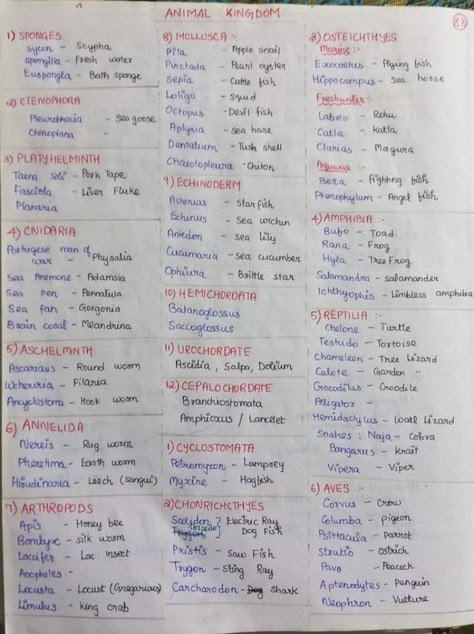 ANIMAL KINGDOM
1) SPONGES
Sycon - Scypha
Spongilla - Fresh water
Euspongla - Bath sponge
2) CTENOPHORA
Pleurobrachia - Sea goose
Ctenoplana -
3) PLATYHELMINTH
Taena Soli - Pork Tape
Fasciola - Liver Fluke
Planaria
4) CNIDARIA
Portugese man of war - Physalia
Sea Anemone - Adamsia
Sea Pen - Pennatula
Sea fan - Gorgonia
Brain coral - Meandrina
5) ASCHELMNTH
Ascarians - Round worm
Wucheraria - Filaria
Ancyclostoma - Hook worm
6) ANNELIDA
Nereis - Rag worm
Pheretima - Earth worm
Hirudinaria - Leech (sangui)
7) ARTHROPODS
Apis - Honey bee
Bombyx - silk worm
Laccifer - Lac insect
Anopheles -
Locusta - Locust (Gregarious)
Limulus - King crab
8) MOLLUSCA :-
Pila - Apple snail
Pinctada - Pearl oyster
Sepia - Cuttle fish
Loligo - Squid
Octopus - Devil fish
Aplysia - sea hare
Dentalium - Tusk shell
Chaetopleura - Chiton
9) ECHINODERM
Asterias - Star fish
Echinus - Sea urchin
Antedon - Sea lily
Cucumaria - sea cucumber
Ophiura - Brittle star
10) HEMICHORDATA
Balanoglossus
Saccoglossus
11) UROCHORDATE
Ascidia, Salpa, Dolium
12) CEPALOCHORDATE
Branchiostomata
Amphioxus / Lancelet
1) CYCLOSTOMATA
Petromyzon - Lamprey
Myxine - Hagfish
2) CHONRICHCTHYES
Scoliodon Electric Ray
Torpedo Dog Fish
Pristis - Saw Fish
Trygon - Sting Ray
Carcharodon - Dog shark
3) OSTEICHTHYES
Marine :-
Exocoetus - Flying fish
Hippocampus - Sea hoose
Freshwater :-
Labeo - Rohu
Catla - Katla
Clarias - Magura
Aquaria :-
Beta - Fighting fish
Pterophylum - Angel fish
4) AMPHIBIA :-
Bufo - Toad
Rana - Frog
Hyla - Tree Frog
Salamandra - salamander
Ichthyophis - Limbless amphibia
5) REPTILIA :-
Chelone - Turtle
Testudo - Tortoise
Chameleon - Tree Lizard
Calote - Garden "
Crocodilus - Crocodile
Alligator -
Hemidactylus - Wall Lizard
Snakes : Naja - Cobra
Bangarus - Krait
Vipera - Viper
6) AVES :-
Corvus - Crow
Columba - pigeon
Psittacula - Parrot
Strutio - ostrich
Pavo - Peacock
Aptenodytes - Penguin
Neophron - Vulture